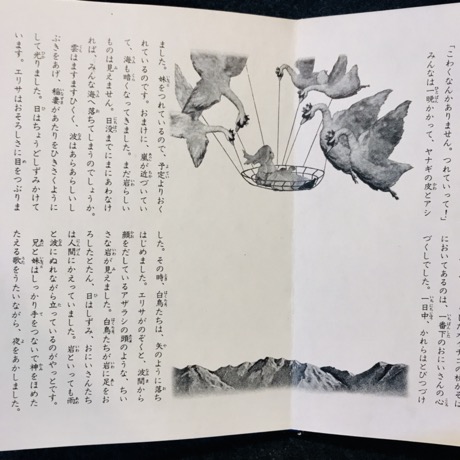 「こわくなんかありません。つれていって！」
みんなは一晩かかって、ヤナギの皮とアシ
においてあるのは、一番下のおにいさんの心
づくしでした。一日中、かれらはとびつづけ
ました。妹をつれているので、予定よりおく
れているのです。おまけに、嵐が近づいてい
て、海も暗くなっていました。まだ岩らしい
ものは見えません。日没までにまにあわなけ
れば、みんな海へ落ちてしまうのでしょうか。
雲はますますひくく、波はあらあらしいし
ぶきをあげ、稲妻があたりをひきさくように
して光りました。日はちょうどしずみかけて
います。エリサはおそろしさに目をつぶりま
した。その時、白鳥たちは、矢のように落ち
はじめました。エリサがのぞくと、波間から
顔をだしているアザラシの頭のような、ちい
さな岩が見えました。白鳥たちが岩に足をお
ろしたとたん、日はしずみ、おにいさんたち
は人間にかえっていました。岩といっても雨
と波にぬれながら立っているのがやっとです。
兄と妹はしっかり手をつないで神をほめた
たえる歌をうたいながら、夜をあかしました。